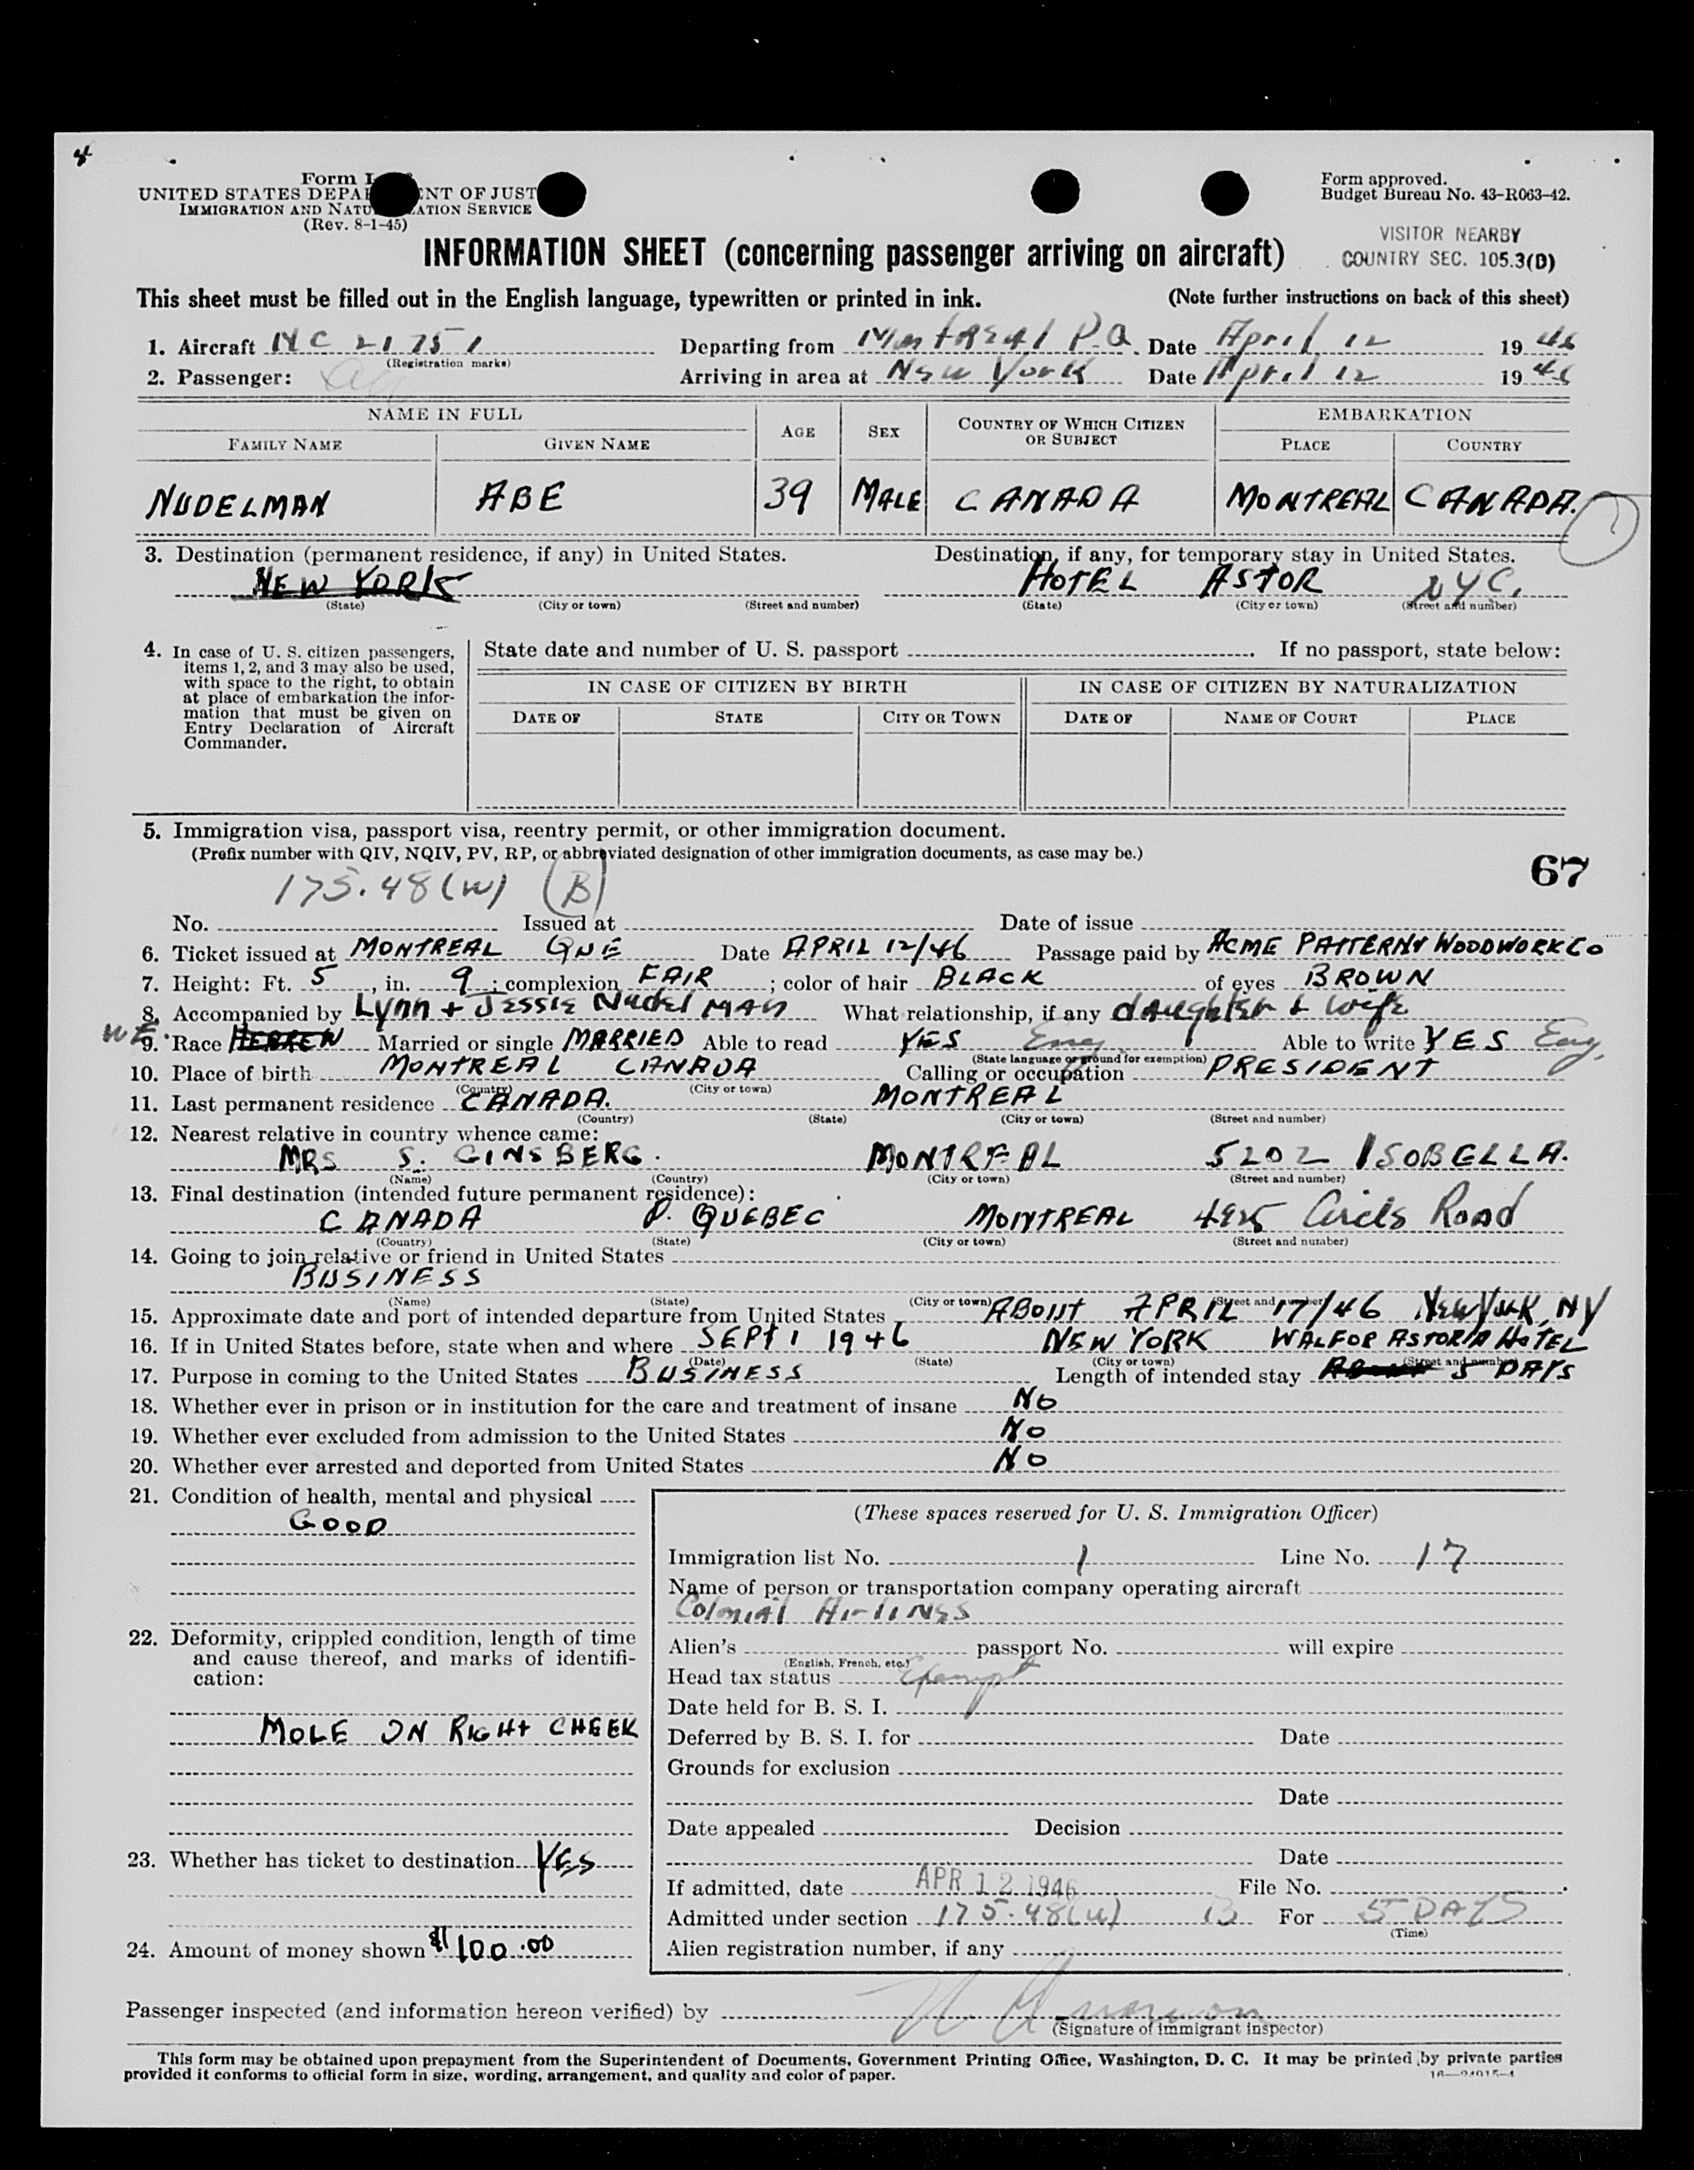 4
Form I
UNITED STATES DEPA ENT OF JUST
IMMIGRATION AND NATU ATION SERVICE
(Rev. 8-1-45)
Form approved.
Budget Bureau No. 43-R063-42.
VISITOR NEARBY
COUNTRY SEC. 105.3(B)
INFORMATION SHEET (concerning passenger arriving on aircraft)
This sheet must be filled out in the English language, typewritten or printed in ink. (Note further instructions on back of this sheet)
1. Aircraft NC 21751 Departing from Montreal P.Q. Date April 12 1946
(Registration marks)
2. Passenger: Arriving in area at New York Date April 12 1946
NAME IN FULL AGE SEX COUNTRY OF WHICH CITIZEN OR SUBJECT EMBARKATION
FAMILY NAME GIVEN NAME PLACE COUNTRY
NUDELMAN ABE 39 MALE CANADA MONTREAL CANADA.
3. Destination (permanent residence, if any) in United States. Destination, if any, for temporary stay in United States.
NEW YORK HOTEL ASTOR NYC.
(State) (City or town) (Street and number) (State) (City or town) (Street and number)
4. In case of U. S. citizen passengers, items 1, 2, and 3 may also be used, with space to the right, to obtain at place of embarkation the information that must be given on Entry Declaration of Aircraft Commander.
State date and number of U. S. passport If no passport, state below:
IN CASE OF CITIZEN BY BIRTH IN CASE OF CITIZEN BY NATURALIZATION
DATE OF STATE CITY OR TOWN DATE OF NAME OF COURT PLACE
5. Immigration visa, passport visa, reentry permit, or other immigration document.
(Prefix number with QIV, NQIV, PV, RP, or abbreviated designation of other immigration documents, as case may be.)
67
175.48(W) (B)
No. Issued at Date of issue
6. Ticket issued at MONTREAL QUE Date APRIL 12/46 Passage paid by ACME PATTERN & WOODWORK CO
7. Height: Ft. 5, in. 9; complexion FAIR; color of hair BLACK of eyes BROWN
8. Accompanied by Lynn + Jessie Nudelman What relationship, if any daughter & wife
WE. 9. Race HEBREW Married or single MARRIED Able to read YES Eng Able to write YES Eng.
(State language or ground for exemption)
10. Place of birth MONTREAL CANADA Calling or occupation PRESIDENT
(Country) (City or town)
11. Last permanent residence CANADA. MONTREAL
(Country) (State) (City or town) (Street and number)
12. Nearest relative in country whence came:
MRS S. GINSBERG. MONTREAL 5202 ISOBELLA.
(Name) (Country) (City or town) (Street and number)
13. Final destination (intended future permanent residence):
CANADA P. QUEBEC MONTREAL 4925 Circle Road
(Country) (State) (City or town) (Street and number)
14. Going to join relative or friend in United States
BUSINESS
(Name) (State) (City or town) (Street and number)
15. Approximate date and port of intended departure from United States ABOUT APRIL 17/46 New York, NY
16. If in United States before, state when and where SEPT 1 1946 NEW YORK WALFOR ASTORIA HOTEL
(Date) (State) (City or town) (Street and number)
17. Purpose in coming to the United States BUSINESS Length of intended stay 5 DAYS
18. Whether ever in prison or in institution for the care and treatment of insane NO
19. Whether ever excluded from admission to the United States NO
20. Whether ever arrested and deported from United States NO
21. Condition of health, mental and physical
GOOD
22. Deformity, crippled condition, length of time and cause thereof, and marks of identification:
MOLE ON RIGHT CHEEK
23. Whether has ticket to destination YES
24. Amount of money shown $100.00
(These spaces reserved for U. S. Immigration Officer)
Immigration list No. 1 Line No. 17
Name of person or transportation company operating aircraft
Colonial Airlines
Alien's passport No. will expire
(English, French, etc.)
Head tax status Exempt
Date held for B. S. I.
Deferred by B. S. I. for Date
Grounds for exclusion
Date
Date appealed Decision
Date
If admitted, date APR 12 1946 File No.
Admitted under section 175.48(W) B For 5 DAYS
(Time)
Alien registration number, if any
Passenger inspected (and information hereon verified) by
(Signature of Immigrant Inspector)
This form may be obtained upon prepayment from the Superintendent of Documents, Government Printing Office, Washington, D. C. It may be printed by private parties
provided it conforms to official form in size, wording, arrangement, and quality and color of paper.